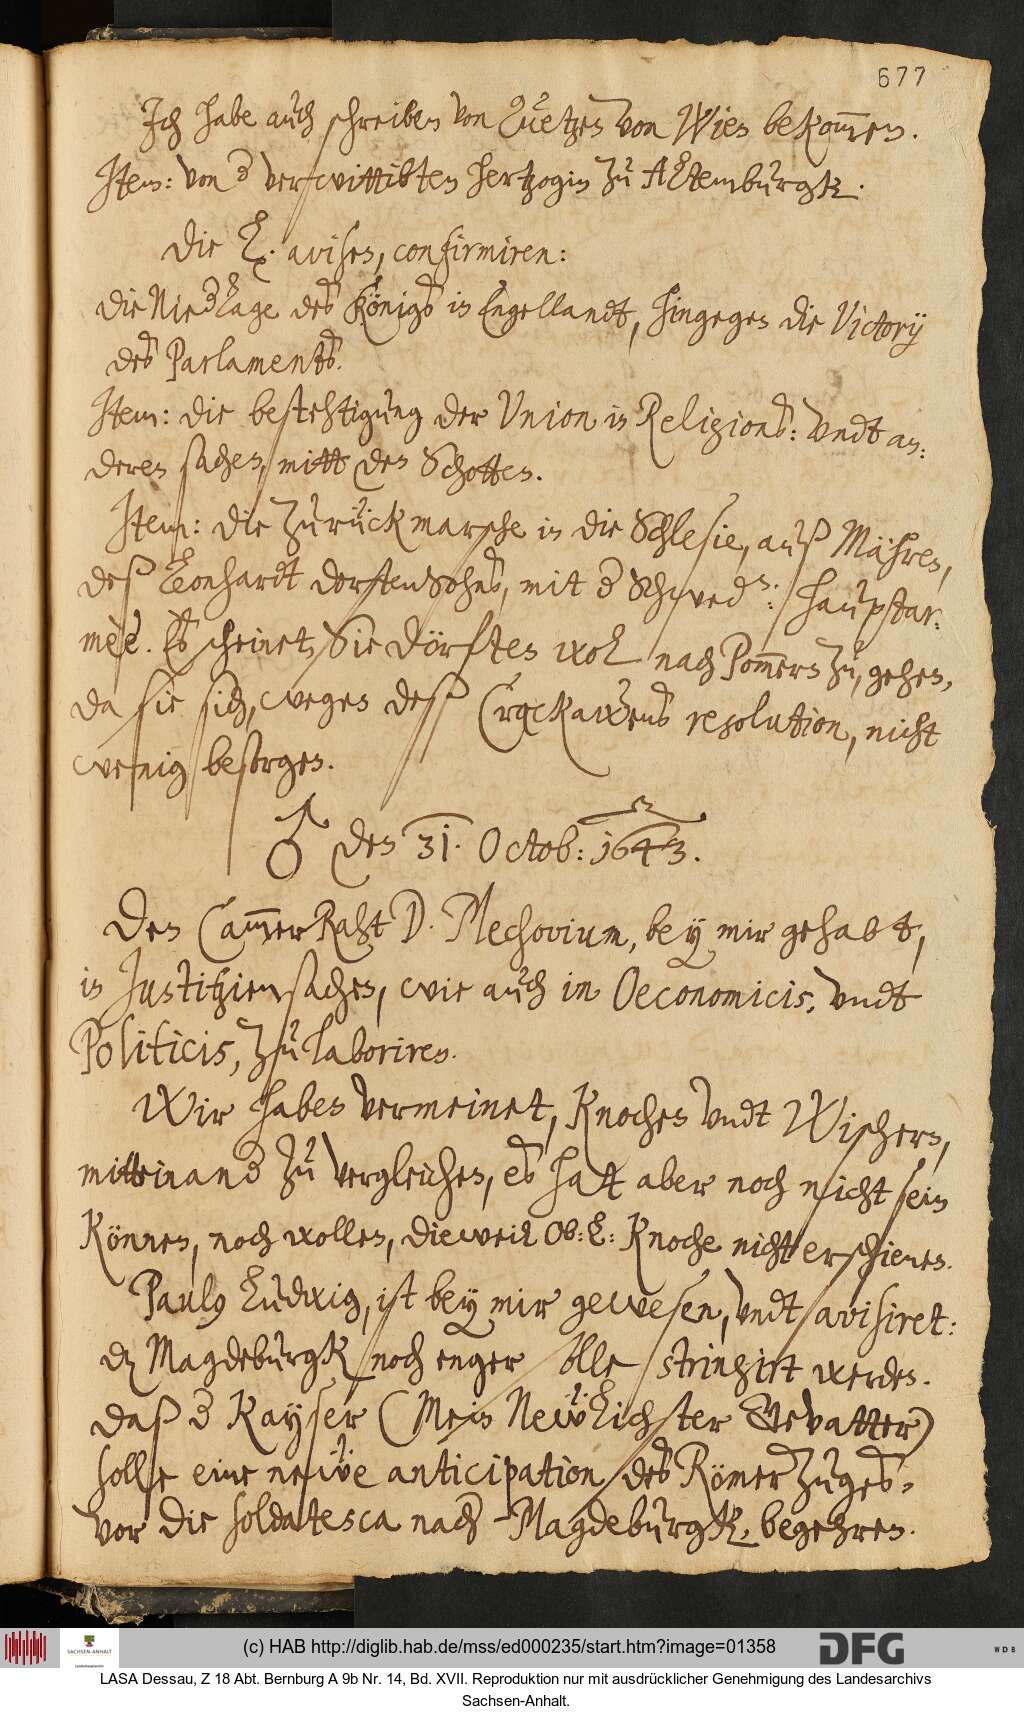 677
Ich habe auch schreiben von Luetzen von Wien bekom̅en.
Item: von d verwittibten Hertzogin zu Altemburgk.
Die L. avisen, confirmiren:
die Niedlage des Königs in Engellandt, hingegen die Victory
des Parlaments.
Item: die bestehtigung der Union in Religions: vndt an:
deren sachen, mitt den Schotten.
Item: die zurückmarsche in die Schlesie, auß Mähren,
deß Leonhardt dorstensohns, mit d Schwed:en hauptar:
mèè. Es scheinet, Sie dörften wol nach Pom̅ern zu, gehen,
da sie sich, wegen deß Crackawens resolution, nicht
wenig besorgen.
♂ den 31. Octob: 1643.
Den Cam̅erRaht D. Mechovium, bey mir gehabt,
in Justitziensachen, wie auch in Oeconomicis, vndt
Politicis, zu laboriren.
Wir haben vermeinet, Knochen vndt Wischern,
mitteinand zu vergleichen, es hat aber noch nicht sein
Können, noch wollen, dieweil Ob: L: Knoche nicht erschienen.
Paulg Ludwig, ist bey mir gewesen, vndt avisiret:
dz Magdeburgk noch enger solle stringirt werden.
daß d Kayser (Mein Newlichster Gevatter)
solle eine newe anticipation des Römerzuges,
vor die soldatesca nach Magdeburgk, begehren.
(c) HAB http://diglib.hab.de/mss/ed000235/start.htm?image=01358
SACHSEN-ANHALT
DFG
WDB
LASA Dessau, Z 18 Abt. Bernburg A 9b Nr. 14, Bd. XVII. Reproduktion nur mit ausdrücklicher Genehmigung des Landesarchivs
Sachsen-Anhalt.